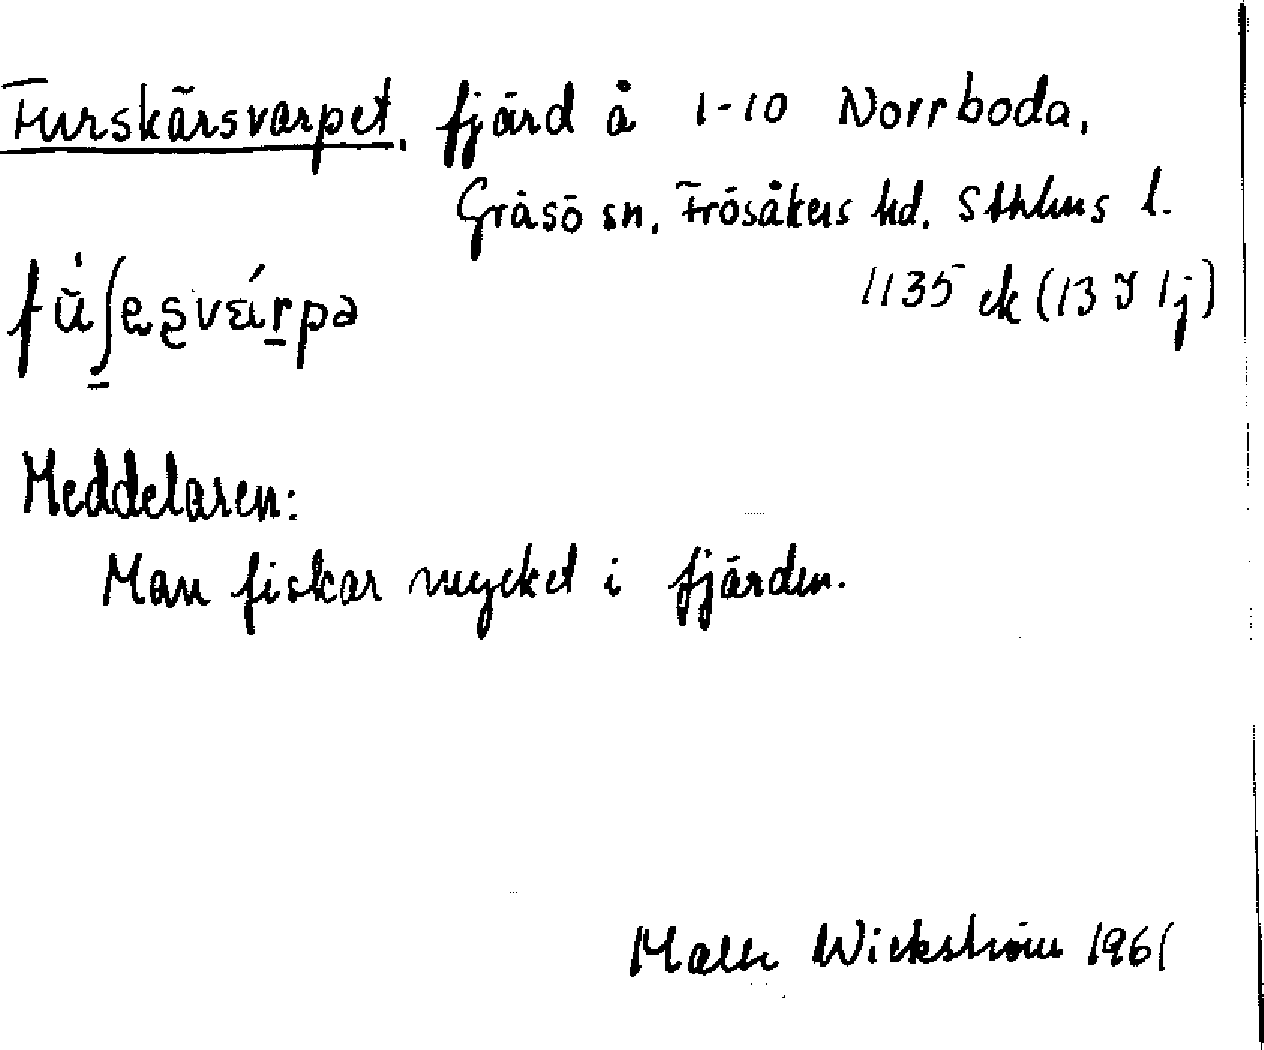 Furskärsvarpet. fjärd å 1-10 Norrboda,
Gräsö sn, Frösåkers hd. Sthlms l.
1135 ek (13 I 1j)
Meddelaren:
Man fiskar mycket i fjärden.
Wickström 1961